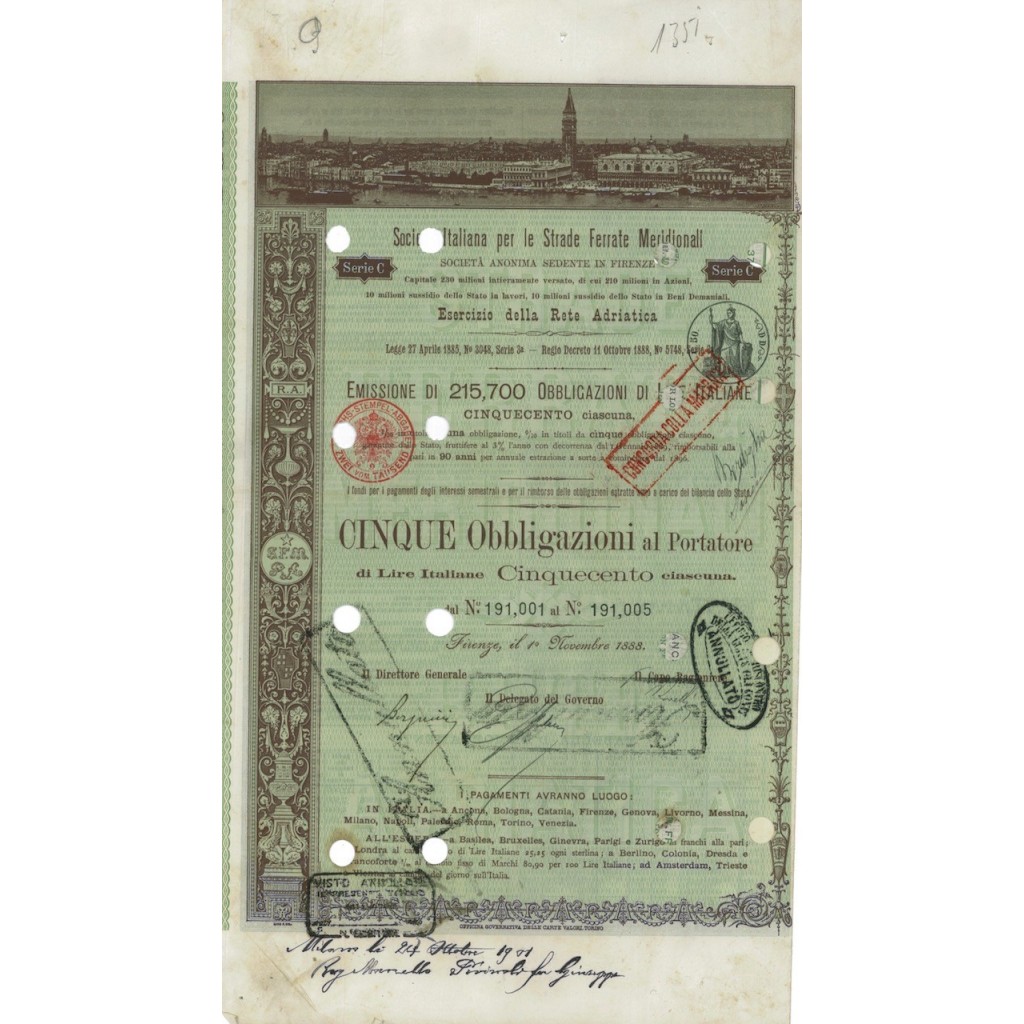 9
1351
Società Italiana per le Strade Ferrate Meridionali
SOCIETÀ ANONIMA SEDENTE IN FIRENZE
Serie C
Serie C
Capitale 230 milioni interamente versato, di cui 210 milioni in Azioni,
10 milioni sussidio dello Stato in lavori, 10 milioni sussidio dello Stato in Beni Demaniali.
Esercizio della Rete Adriatica
Legge 27 Aprile 1885, Nº 3048, Serie 3ª — Regio Decreto 11 Ottobre 1888, Nº 5748, Serie
EMISSIONE DI 215,700 OBBLIGAZIONI DI ITALIANE
CINQUECENTO ciascuna,
R.A.
in titoli da una obbligazione, in titoli da cinque obbligazioni ciascuno,
dello Stato, fruttifere al 3% l'anno con decorrenza dal rimborsabili alla
pari in 90 anni per annuale estrazione a sorte a dal
I fondi per i pagamenti degli interessi semestrali e per il rimborso delle obbligazioni estratte sono a carico del bilancio dello Stato
CINQUE Obbligazioni al Portatore
di Lire Italiane Cinquecento ciascuna.
S.F.M.
R.A.
dal Nº 191,001 al Nº 191,005
Firenze, il 1º Novembre 1888.
Il Direttore Generale
Il Capo Ragioniere
Il Delegato del Governo
ANNULLATO
I PAGAMENTI AVRANNO LUOGO:
IN ITALIA - a Ancona, Bologna, Catania, Firenze, Genova, Livorno, Messina,
Milano, Napoli, Palermo, Roma, Torino, Venezia.
ALL'ESTERO - a Basilea, Bruxelles, Ginevra, Parigi e Zurigo in franchi alla pari;
Londra al cambio fisso di Lire Italiane 25,25 ogni sterlina; a Berlino, Colonia, Dresda e
Francoforte al cambio fisso di Marchi 80,90 per 100 Lire Italiane; ad Amsterdam, Trieste
Vienna al cambio del giorno sull'Italia.
VISTO
OFFICINA GOVERNATIVA DELLE CARTE VALORI, TORINO
Milano li 24 Ottobre 1901
Rag Marcello fu Giuseppe